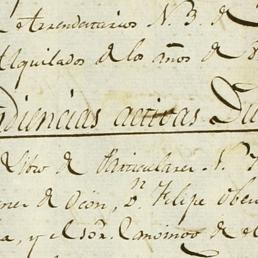 Arrendatarios N. 3. de
Alquilados de los años de
diencias activas Du
Libro de Particulares N.
de Ocon, Dn Felipe
y el Sor. Canonigo de el